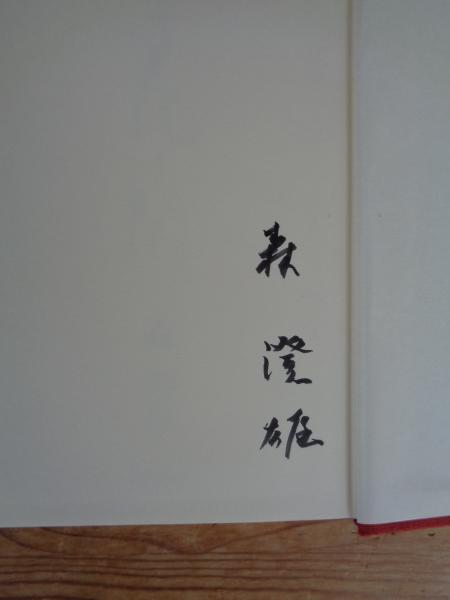 森澄雄